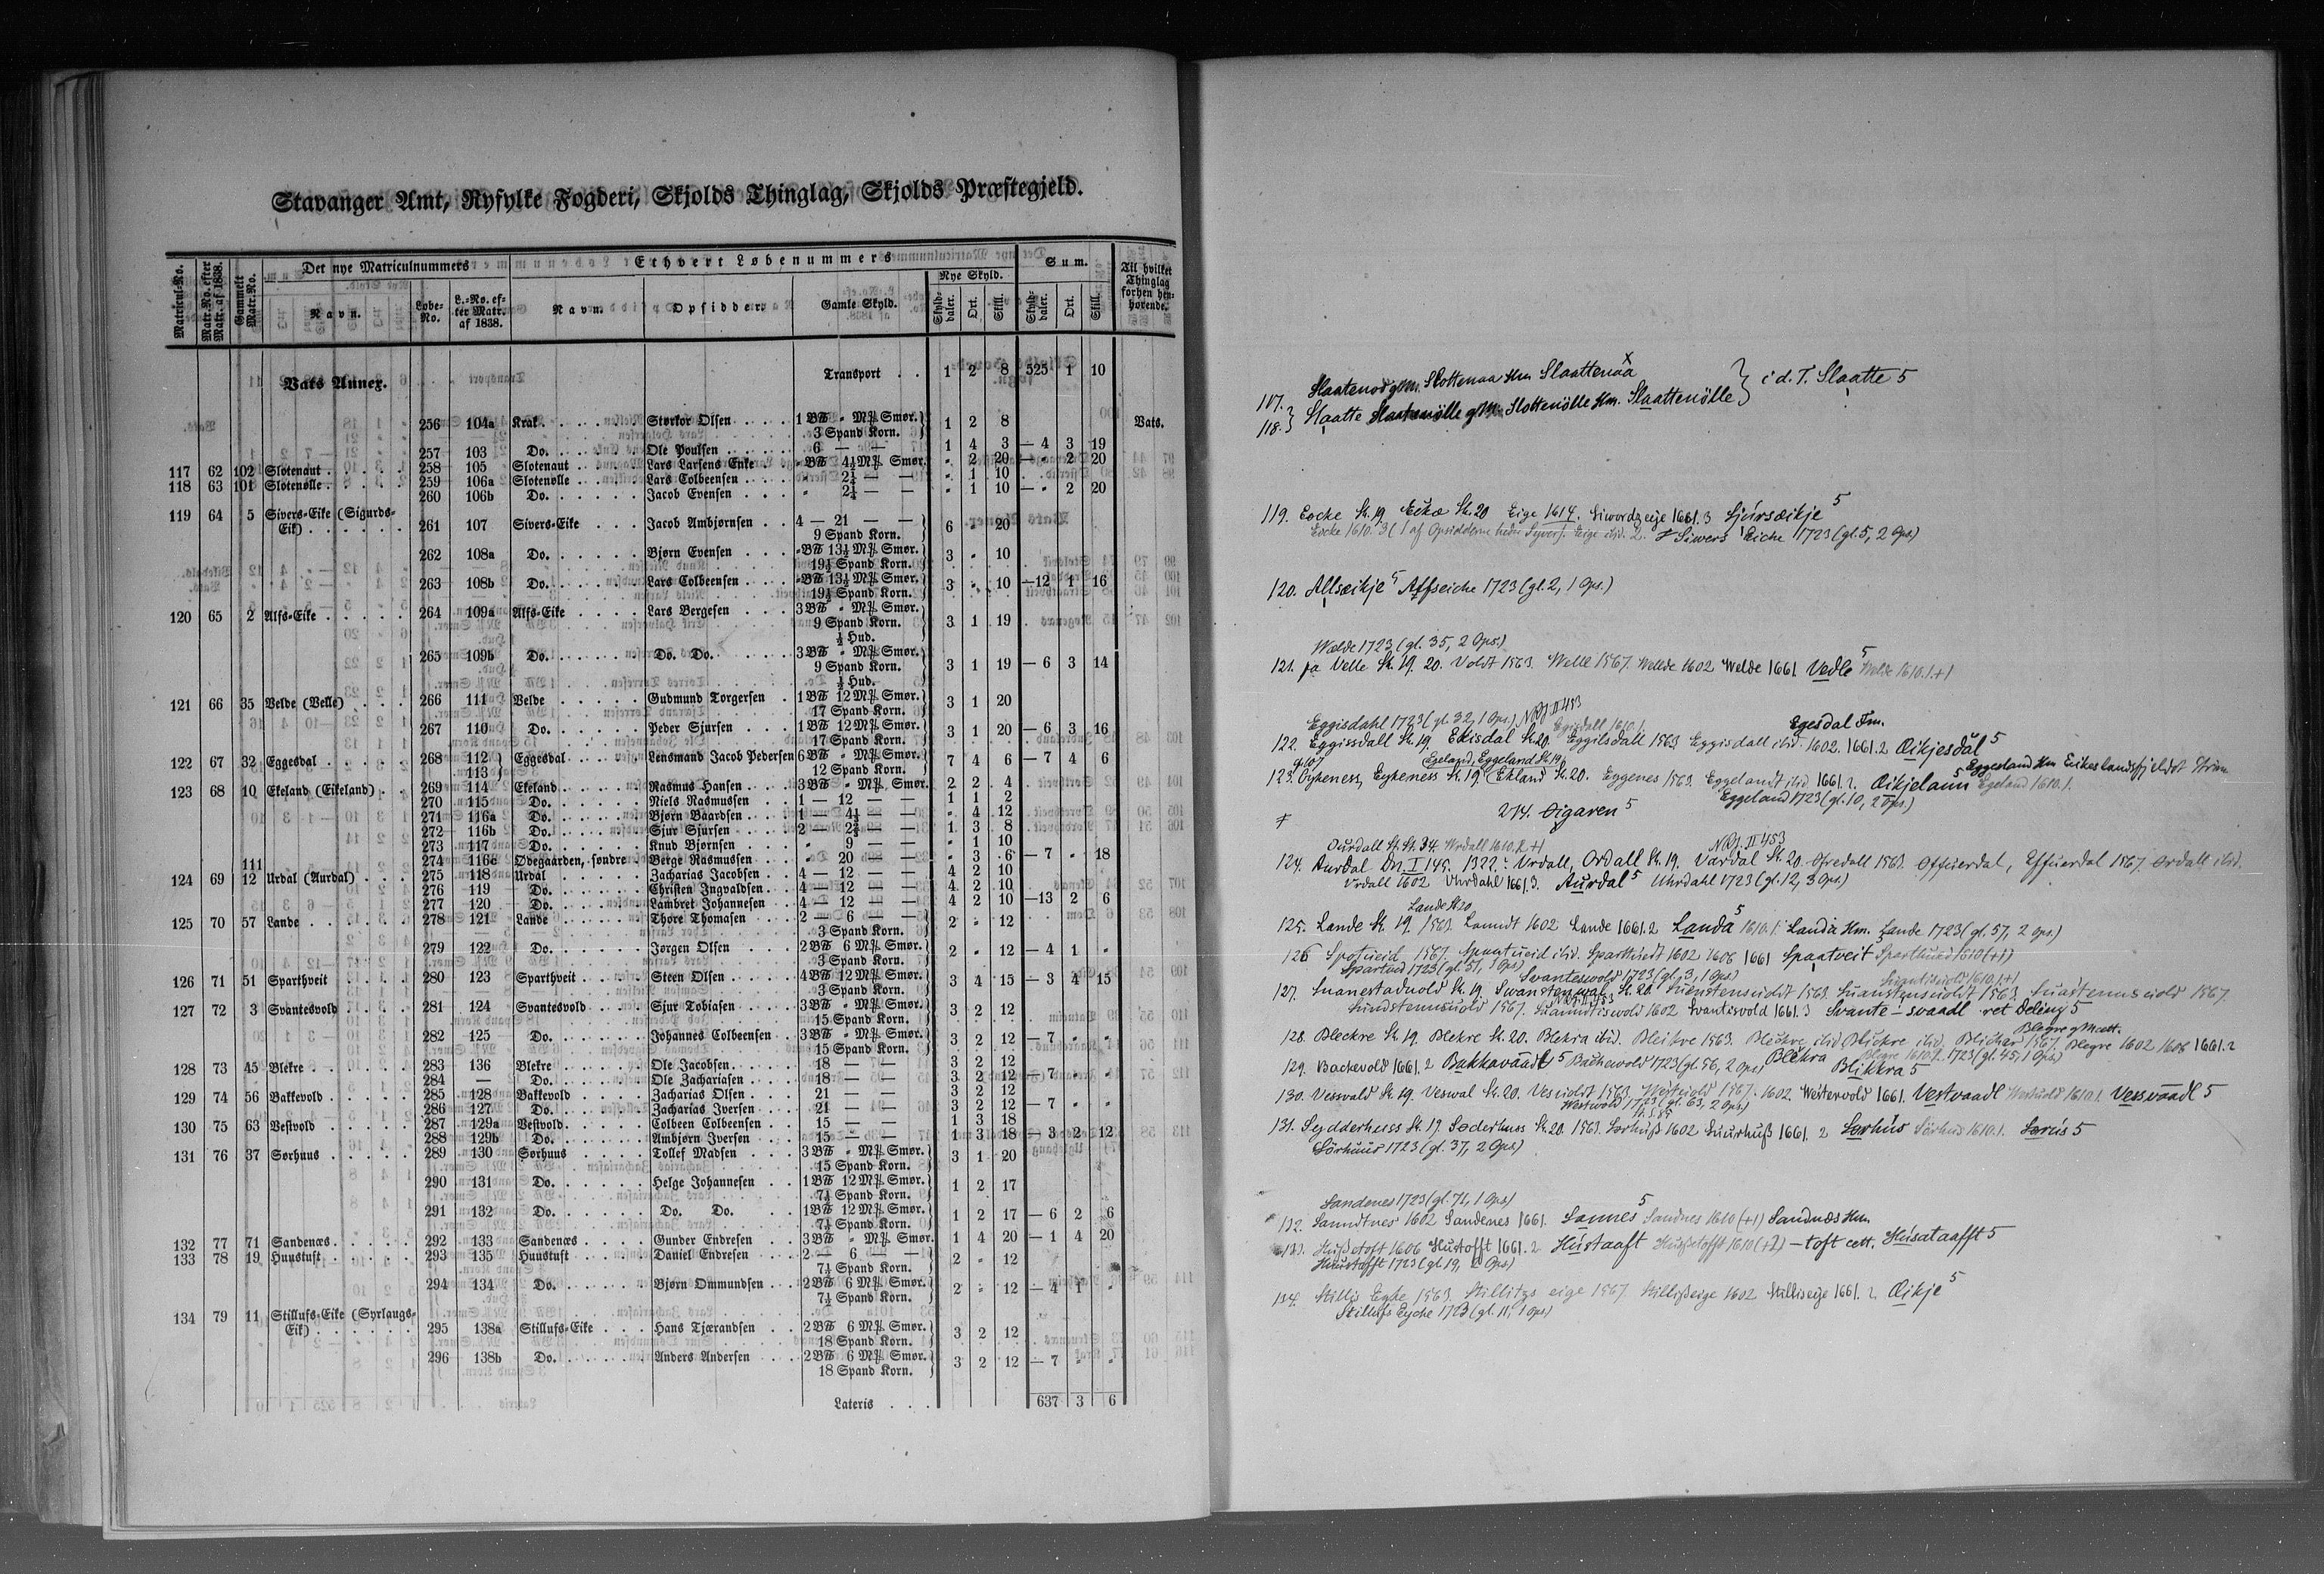 Stavanger Amt, Ryfylke Fogderi, Skjolds Thinglag, Skjolds Præstegjeld.
Matricul-No. Matr.No. efter Matr. af 1838. Gammelt Matr.No. Det nye Matriculnummers Ethvert Løbenummers Sum. Til hvilket Thinglag forhen henhørende.
Navn. Løbe-No. L.-No. efter Matr. af 1838. Navn. Opsidder. Gamle Skyld. Nye Skyld. Skylddaler. Ort. Skill. Skylddaler. Ort. Skill.
Vats Annex. Transport . . 1 2 8 525 1 10
256 104a Krak Størkor Olsen 1 B℔ " M⅌ Smør. 3 Spand Korn. 1 2 8 Vats.
257 103 Do. Ole Poulsen 6 — — 1 4 3 — 4 3 19
117 62 102 Slotenaut 258 105 Slotenaut Lars Larsens Enke " B℔ 4½ M⅌ Smør. " 2 20 — " 2 20
118 63 101 Slotenølle 259 106a Slotenølle Lars Colbeensen " 2¼ — — " 1 10
260 106b Do. Jacob Evensen " 2¼ — — " 1 10 — " 2 20
119 64 5 Sivers-Eike (Sigurds-
Eik) 261 107 Sivers-Eike Jacob Ambjørnsen 4 — 21 — — 9 Spand Korn. 6 " 20
262 108a Do. Bjørn Evensen " B℔ 13½ M⅌ Smør. 19½ Spand Korn. 3 " 10
263 108b Do. Lars Colbeensen " B℔ 13½ M⅌ Smør. 19½ Spand Korn. 3 " 10 —12 1 16
120 65 2 Alfs-Eike 264 109a Alfs-Eike Lars Bergesen 3 B℔ " M⅌ Smør. 9 Spand Korn. ½ Hud. 3 1 19
265 109b Do. Do. Do. 3 B℔ " M⅌ Smør. 9 Spand Korn. ½ Hud. 3 1 19 — 6 3 14
121 66 35 Velde (Velle) 266 111 Velde Gudmund Torgersen 1 B℔ 12 M⅌ Smør. 17 Spand Korn. 3 1 20
267 110 Do. Peder Sjursen 1 B℔ 12 M⅌ Smør. 17 Spand Korn. 3 1 20 — 6 3 16
122 67 32 Eggesdal 268 112 113 Eggesdal Lensmand Jacob Pedersen 6 B℔ " M⅌ Smør. 12 Spand Korn. 7 4 6 — 7 4 6
123 68 10 Ekeland (Eikeland) 269 114 Ekeland Rasmus Hansen 3 B℔ " M⅌ Smør. 2 2 4
270 115 Do. Niels Rasmussen 1 — 12 — — 1 1 2
271 116a Do. Bjørn Baardsen 1 — 4½ — — " 4 12
272 116b Do. Sjur Sjursen 2 — 2¾ — — 1 3 8
273 117 Do. Knud Bjørnsen " 9 — — " 1 10
111 274 116c Ødegaarden, søndre Berge Rasmussen " 20 — — " 3 6 — 7 " 18
124 69 12 Urdal (Aurdal) 275 118 Urdal Zacharias Jacobsen 4 — 12 — — 4 2 10
276 119 Do. Christen Ingvaldsen 4 — 12 — — 4 2 10
277 120 Do. Lambret Johannesen 4 — 12 — — 4 2 10 —13 2 6
125 70 57 Lande 278 121 Lande Thore Thomasen 2 — 6 — — 3 Spand Korn. 2 " 12
279 122 Do. Jørgen Olsen 2 B℔ 6 M⅌ Smør. 3 Spand Korn. 2 " 12 — 4 1 "
126 71 51 Sparthveit 280 123 Sparthveit Steen Olsen 4 B℔ 12 M⅌ Smør. 3 Spand Korn. 3 4 15 — 3 4 15
127 72 3 Svantesvold 281 124 Svantesvold Sjur Tobiasen 3 B℔ " M⅌ Smør. 15 Spand Korn. 3 2 12
282 125 Do. Johannes Colbeensen 3 B℔ " M⅌ Smør. 15 Spand Korn. 3 2 12 — 7 " "
128 73 45 Blekre 283 136 Blekre Ole Jacobsen 18 — — 3 2 12
284 — Do. Ole Zachariasen 18 — — 3 2 12 — 7 " "
129 74 56 Bakkevold 285 128 Bakkevold Zacharias Olsen 21 — — 3 2 12
286 127 Do. Zacharias Iversen 21 — — 3 2 12 — 7 " "
130 75 63 Vestvold 287 129a Vestvold Colbeen Colbeensen 15 — — 1 3 18
288 129b Do. Ambjørn Iversen 15 — — 1 3 18 — 3 2 12
131 76 37 Sørhuus 289 130 Sørhuus Tollef Madsen 3 B℔ " M⅌ Smør. 15 Spand Korn. 3 1 20
290 131 Do. Helge Johannesen 1 B℔ 12 M⅌ Smør. 7½ Spand Korn. 1 2 17
291 132 Do. Do. Do. 1 B℔ 12 M⅌ Smør. 7½ Spand Korn. 1 2 17 — 6 2 6
132 77 71 Sandenæs 292 133 Sandenæs Gunder Endresen 3 B℔ " M⅌ Smør. 1 4 20 — 1 4 20
133 78 19 Huustuft 293 135 Huustuft Daniel Endresen 2 — 6 — — 7½ Spand Korn. 2 " 12
294 134 Do. Bjørn Ommundsen 2 B℔ 6 M⅌ Smør. 7½ Spand Korn. 2 " 12 — 4 1 "
134 79 11 Stillufs-Eike (Syrlaugs-
Eik) 295 138a Stillufs-Eike Hans Tjærandsen 2 B℔ 6 M⅌ Smør. 18 Spand Korn. 3 2 12
296 138b Do. Anders Andersen 2 B℔ 6 M⅌ Smør. 18 Spand Korn. 3 2 12 — 7 " "
Lateris . . . 637 3 6
117. Slaatenod gMm. Slottenaa Hm. Slaattenaa x } i d. T. Slaatte 5
118. Slaatte Slaatenølle gMm. Slottenølle Hm. Slaattenölle
119. Eocke St. 19 Eckæ St. 20 Eige 1614. Siwordzeije 1661.3 Sjúrsæikje 5
Eocke 1610. 3 (1 af Opsidderne heder Syver). Eige ibid. 2. Siwers Eiche 1723 (gl. 5, 2 Ops.)
120. Allsæikje 5 Affseiche 1723 (gl. 2, 1 Ops.)
Wælde 1723 (gl. 35, 2 Ops.)
121. pa Velle St. 19. 20. Voldt 1563. Welle 1567. Wellde 1602 Welde 1661 Vedle 5 Welde 1610.1.+1
Eggisdahl 1723 (gl. 32, 1 Ops.) NRJ. II 453 Egisdall 1610.1. Egesdal Fm.
122. Eggissdall St. 19, Ekisdal St. 20. Eggilsdall 1563 Eggisdall ibid. 1602. 1661.2 Œikjesdal 5
Egeland, Eggeland St. 19 Eggesland Hm Eikeslandsfjeldet
123. Eyheness, Eykeness St. 19. (Ekland St. 20. Eggenes 1563. Eggelandt ibid 1661.2. Œikjelann 5 Egeland 1610.1.
Eggeland 1723 (gl. 10, 2 Ops.)
274. Øigaren 5
Ourdall St. 34. Wrdall 1610.2.+1 NRJ. II 453
124. Aurdal DN. I 145. 1322. Urdall, Ordall St. 19. Vardal St. 20. Ofredall 1563. Offuerdal, Effuerdal 1567. Ordall ibid.
Vrdall 1602 Uhrdahl 1661.3. Aurdal 5 Uhrdahl 1723 (gl. 12, 3 Ops.)
Lande St. 20
125. Lande St. 19. 1563. Lanndt 1602 Lande 1661.2 Landa 5 1610.1. Landa Hm. Lande 1723 (gl. 57, 2 Ops.)
126 Spotueid 1567. ibid. Sparttuedt 1602 1606 1661 Spaatveit 5 Sparthued 1610 (+1)
Spartved 1723 (gl. 51, 1 Ops) Svanteswold 1723 (gl. 3, 1 Ops.) 1610.1.+1
127. Suanestaduold St. 19 Swanstenwal St. 20. Suenstensuoldt 1563. Suanstensuoldt 1563. Suastenusuold 1567.
Sundstennsuold 1567. NRJ. II 453 1602 Svantisvold 1661.3 Svante-svaadl ret Deling 5
128. Bleckre St. 19. Blekre St. 20. Blekra ibid. Bleikre 1563. Bleckre ibid Bluckre ibid. Blicher 1567. Blegre 1602 1606 1661.2
Blegre gM cett.
129. Backevold 1661.2 Bakkavaadl 5 Bachewold 1723 (gl. 56, 2 Ops) Blekra Blegre 1610.2. 1723 (gl. 45, 1 Ops)
Blikkra 5
130. Vesswald St. 19. Veswal St. 20. Vesuoldt 1563. Westuold 1567. 1602 Westervold 1661. Vestvaadl Westuold 1610.1. Vessvaadl 5
Westwold 1723 (gl. 63, 2 Ops.)
131. Sydderhuss St. 19 Søderhuss St. 20. 1563. Sørhuß 1602 Suurhuß 1661. 2 Sørhús Sörhus 1610.1. Sørús 5
Sörhuus 1723 (gl. 37, 2 Ops)
Sandenes 1723 (gl. 71, 1 Ops)
132. Sanndtnes 1602 Sandenes 1661. Sannes 5 Sandnes 1610 (+1) Sandnæs Hm.
133. Hußetoft 1606 Hustofft 1661.2 Hústaaft Hußetofft 1610 (+2) —toft cett. Húsataafft 5
Huustafft 1723 (gl. 19, 2 Ops)
134. Stillis Eghe 1563. Stillitzs eige 1567. Stillißeige 1602 Stilliseije 1661.2. Œikje 5
Stillufs Eyche 1723 (gl. 11, 1 Ops)